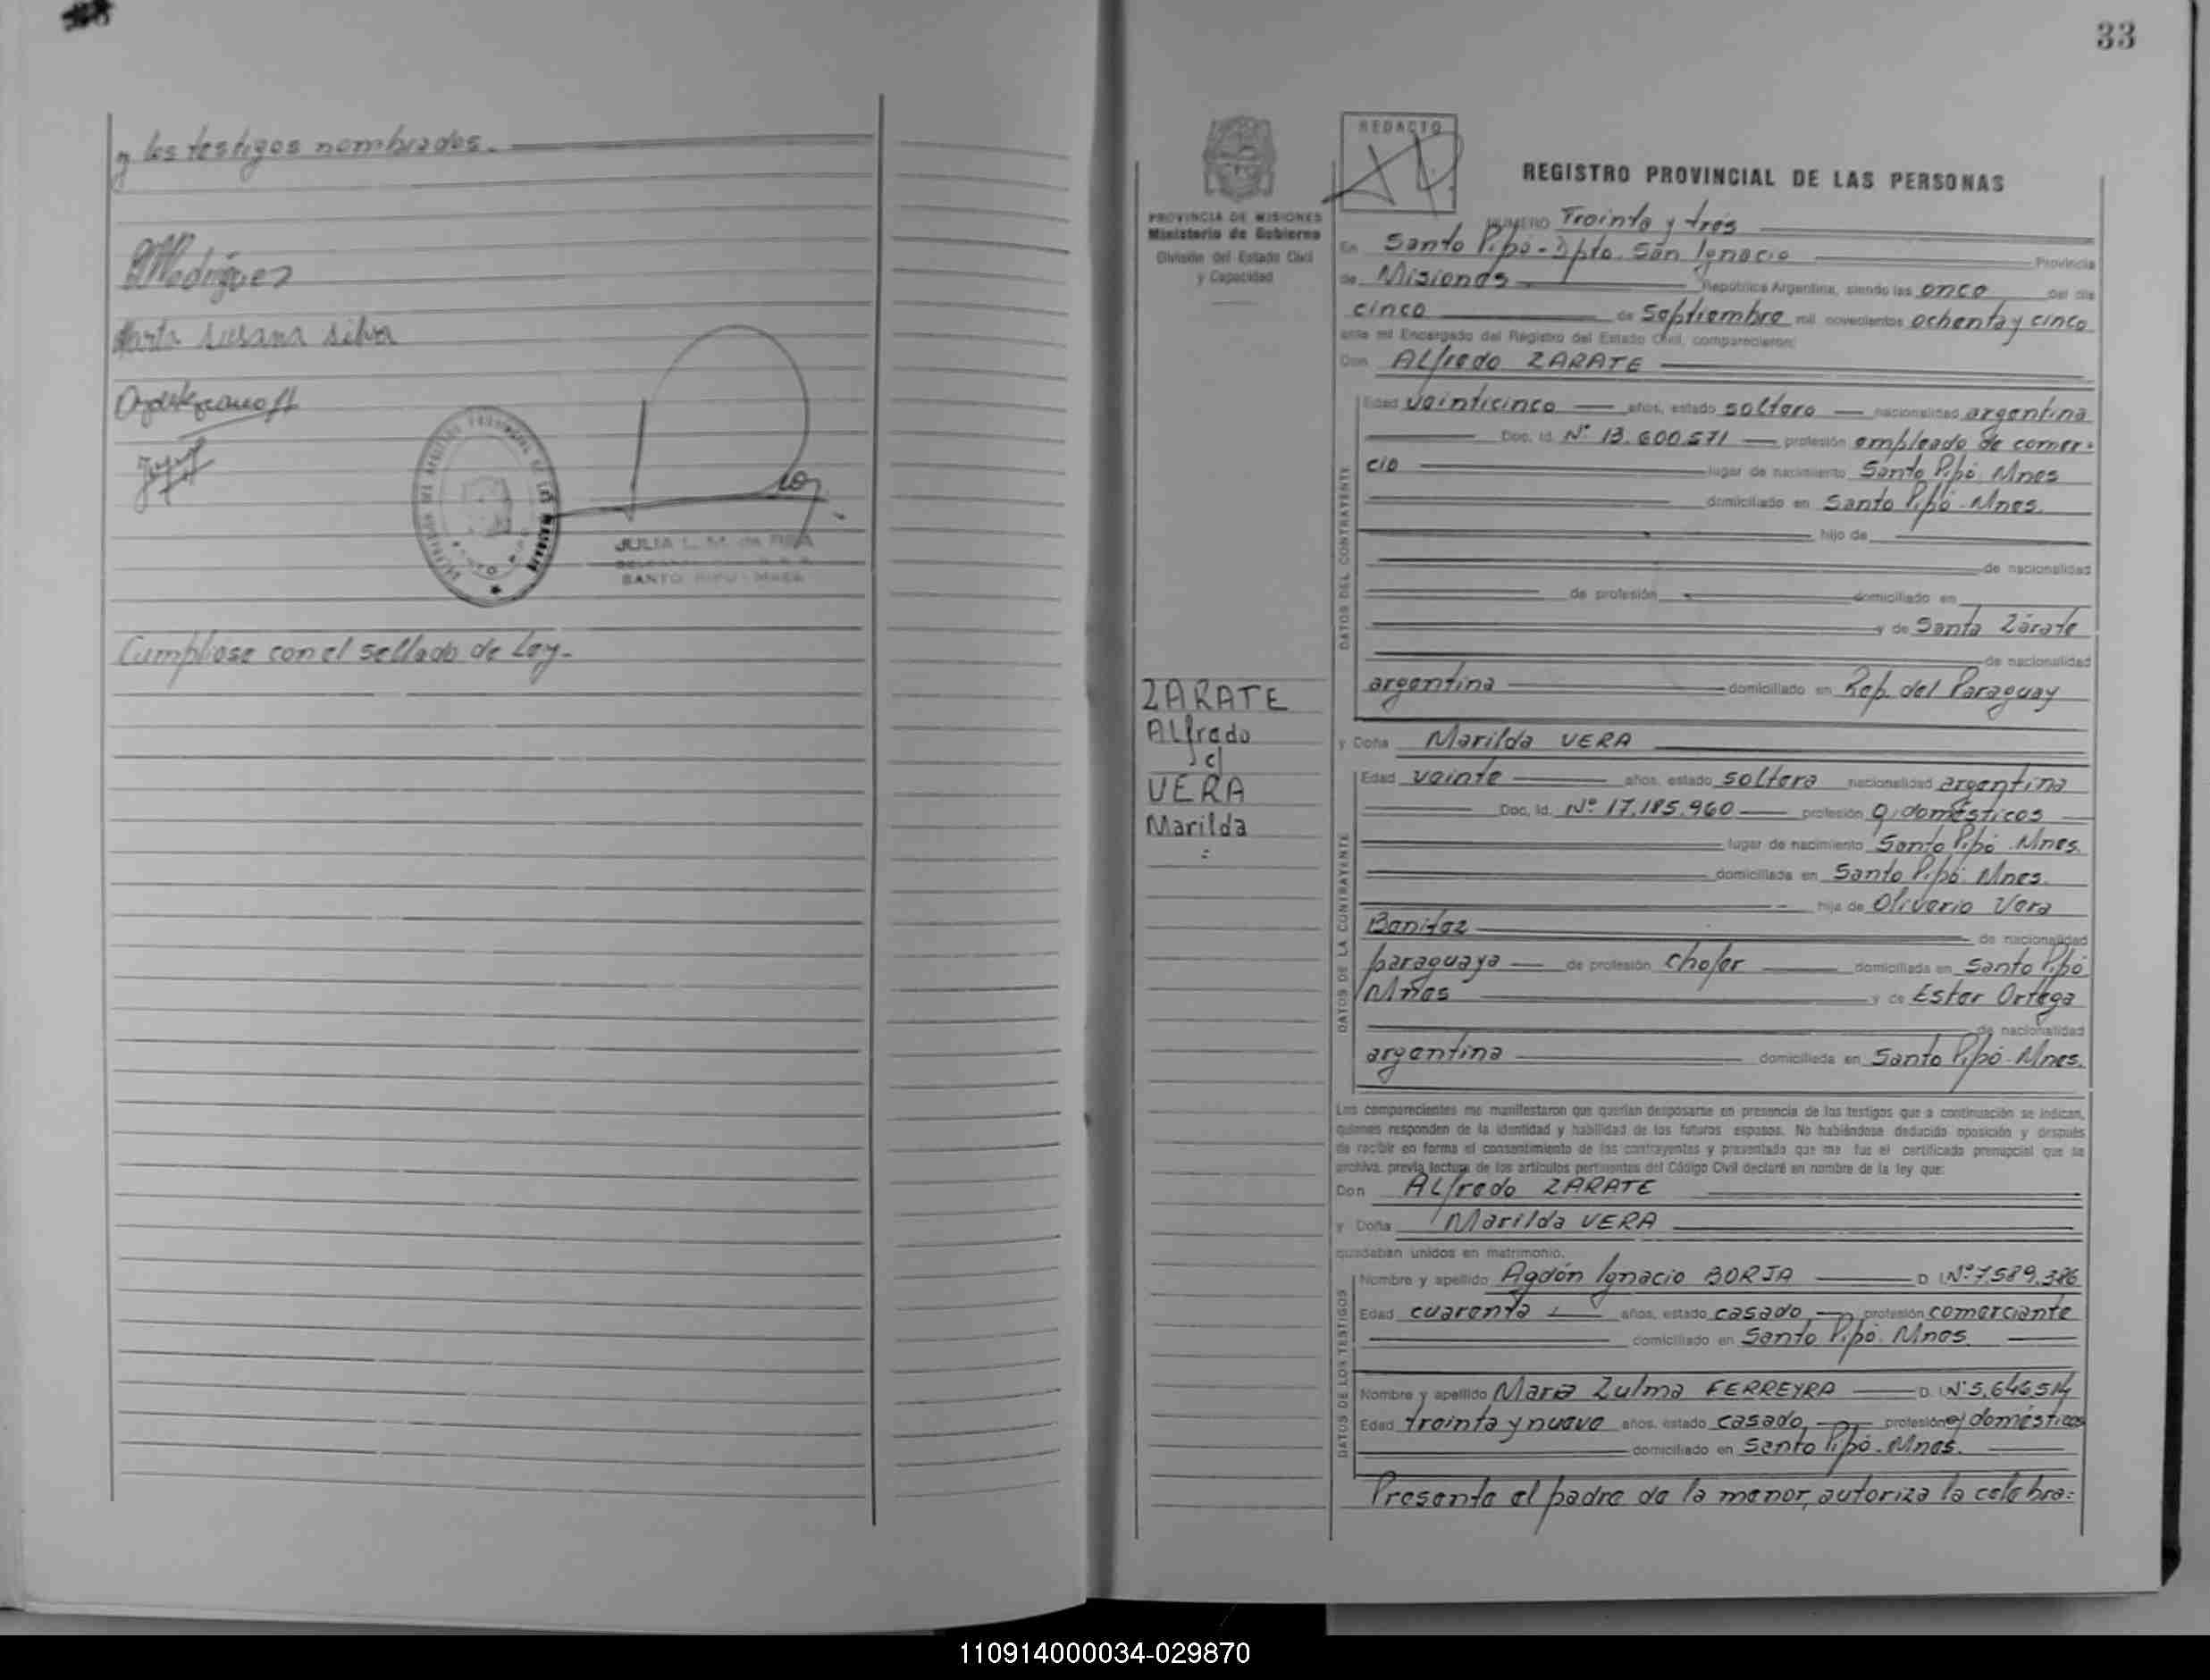 y los testigos nombrados.
Rodriguez
Marta Susana Silva
JULIA L. M. de
SANTO PIPO - MNES
Cumpliose con el sellado de Ley.-
33
REDACTO
PROVINCIA DE MISIONES
Ministerio de Gobierno
División del Estado Civil
y Capacidad
ZARATE
Alfredo
c/
VERA
Marilda
REGISTRO PROVINCIAL DE LAS PERSONAS
NUMERO Treinta y tres
En Santo Pipó - Dpto. San Ignacio Provincia
de Misiones República Argentina, siendo las once del día
cinco de Septiembre mil novecientos ochenta y cinco
ante mí Encargado del Registro del Estado Civil, comparecieron:
Don Alfredo ZARATE
DATOS DEL CONTRAYENTE
Edad veinticinco años, estado soltero nacionalidad argentina
Doc. Id. Nº 13.600.571 profesión empleado de comer-
cio lugar de nacimiento Santo Pipó Mnes
domiciliado en Santo Pipó - Mnes.
hijo de
de nacionalidad
de profesión domiciliado en
y de Santa Zárate
de nacionalidad
argentina domiciliado en Rep. del Paraguay
y Doña Marilda VERA
DATOS DE LA CONTRAYENTE
Edad veinte años, estado soltera nacionalidad argentina
Doc. Id. Nº 17.185.960 profesión q. domésticos
lugar de nacimiento Santo Pipó Mnes.
domiciliada en Santo Pipó. Mnes.
hija de Oliverio Vera
Benitez de nacionalidad
paraguaya de profesión chofer domiciliada en Santo Pipó
Mnes y de Ester Ortega
de nacionalidad
argentina domiciliada en Santo Pipó - Mnes.
Los comparecientes me manifestaron que querían desposarse en presencia de los testigos que a continuación se indican,
quienes responden de la identidad y habilidad de los futuros esposos. No habiéndose deducido oposición y después
de recibir en forma el consentimiento de los contrayentes y presentado que me fue el certificado prenupcial que se
archiva, previa lectura de los artículos pertinentes del Código Civil declaré en nombre de la ley que:
Don Alfredo ZARATE
y Doña Marilda VERA
quedaban unidos en matrimonio.
DATOS DE LOS TESTIGOS
Nombre y apellido Agdón Ignacio BORJA D.I. Nº 7.589.386
Edad cuarenta años, estado casado profesión comerciante
domiciliado en Santo Pipó. Mnes.
Nombre y apellido Maria Zulma FERREYRA D.I. Nº 5.646.514
Edad treinta y nueve años, estado casado profesión q/ domésticos
domiciliado en Santo Pipó - Mnes.
Presente el padre de la menor, autoriza la celebra-
110914000034-029870